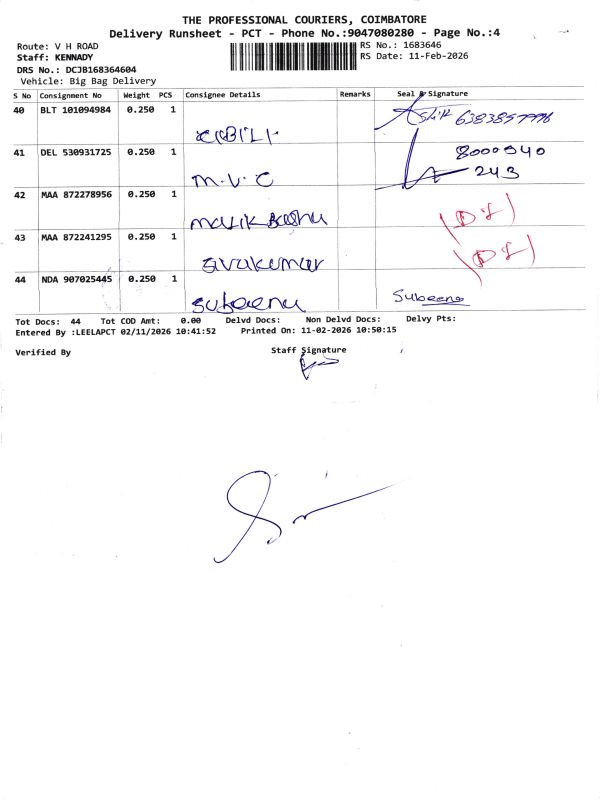 THE PROFESSIONAL COURIERS, COIMBATORE
Delivery Runsheet - PCT - Phone No.:9047080280 - Page No.:4
Route: V H ROAD
RS No.: 1683646
Staff: KENNADY
RS Date: 11-Feb-2026
DRS No.: DCJB168364604
Vehicle: Big Bag Delivery
S No Consignment No Weight PCS Consignee Details Remarks Seal & Signature
40 BLT 101094984 0.250 1
41 DEL 530931725 0.250 1 8000940
M.V.C 243
42 MAA 872278956 0.250 1
malik Basha
43 MAA 872241295 0.250 1
sivakumar
44 NDA 907025445 0.250 1
Subeena
Tot Docs: 44 Tot COD Amt: 0.00 Delvd Docs: Non Delvd Docs: Delvy Pts:
Entered By :LEELAPCT 02/11/2026 10:41:52 Printed On: 11-02-2026 10:50:15
Verified By Staff Signature